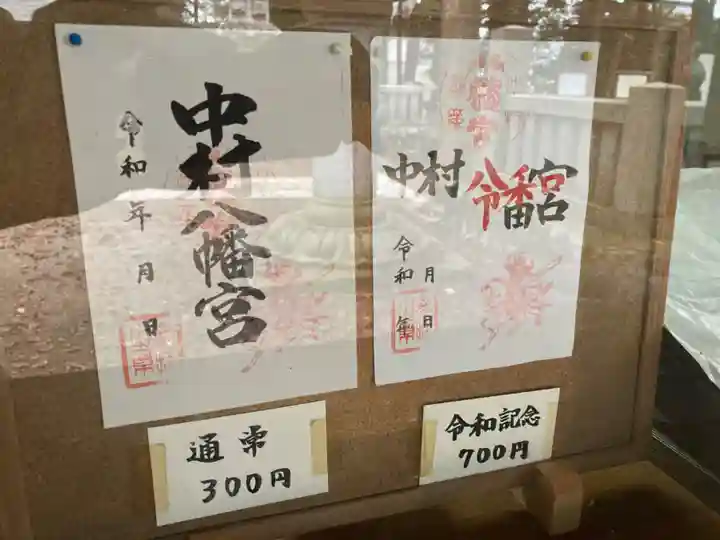 中村八幡宮
令和 年 月 日
通常
300円
中村 令和 幡宮
令和 年
月 日
令和記念
700円